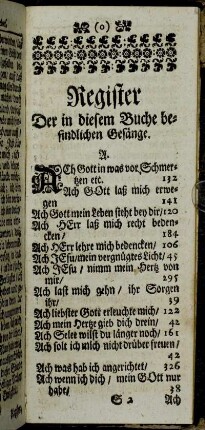 (0)
Register
Der in diesem Buche be-
findlichen Gesänge.
A.
ACh Gott in was vor Schmer-
tzen etc. 132
Ach GOtt laß mich erwe-
gen 141
Ach Gott mein Leben steht bey dir/ 120
Ach HErr laß mich recht beden
cken/ 184
Ach HErr lehre mich bedencken/ 106
Ach JEsu/ mein vergnügtes Licht/ 45
Ach JEsu, nimm mein Hertz von
mir/ 195
Ach last mich gehn/ ihr Sorgen
ihr/ 39
Ach liebster Gott erleuchte mich/ 122
Ach mein Hertze gieb dich drein/ 42
Ach Seele wilst du länger noch/ 161
Ach solt ich mich nicht drüber freuen/
42
Ach was hab ich angerichtet/ 326
Ach wenn ich dich/ mein GOtt nur
habe/ 38
S 2 Ach